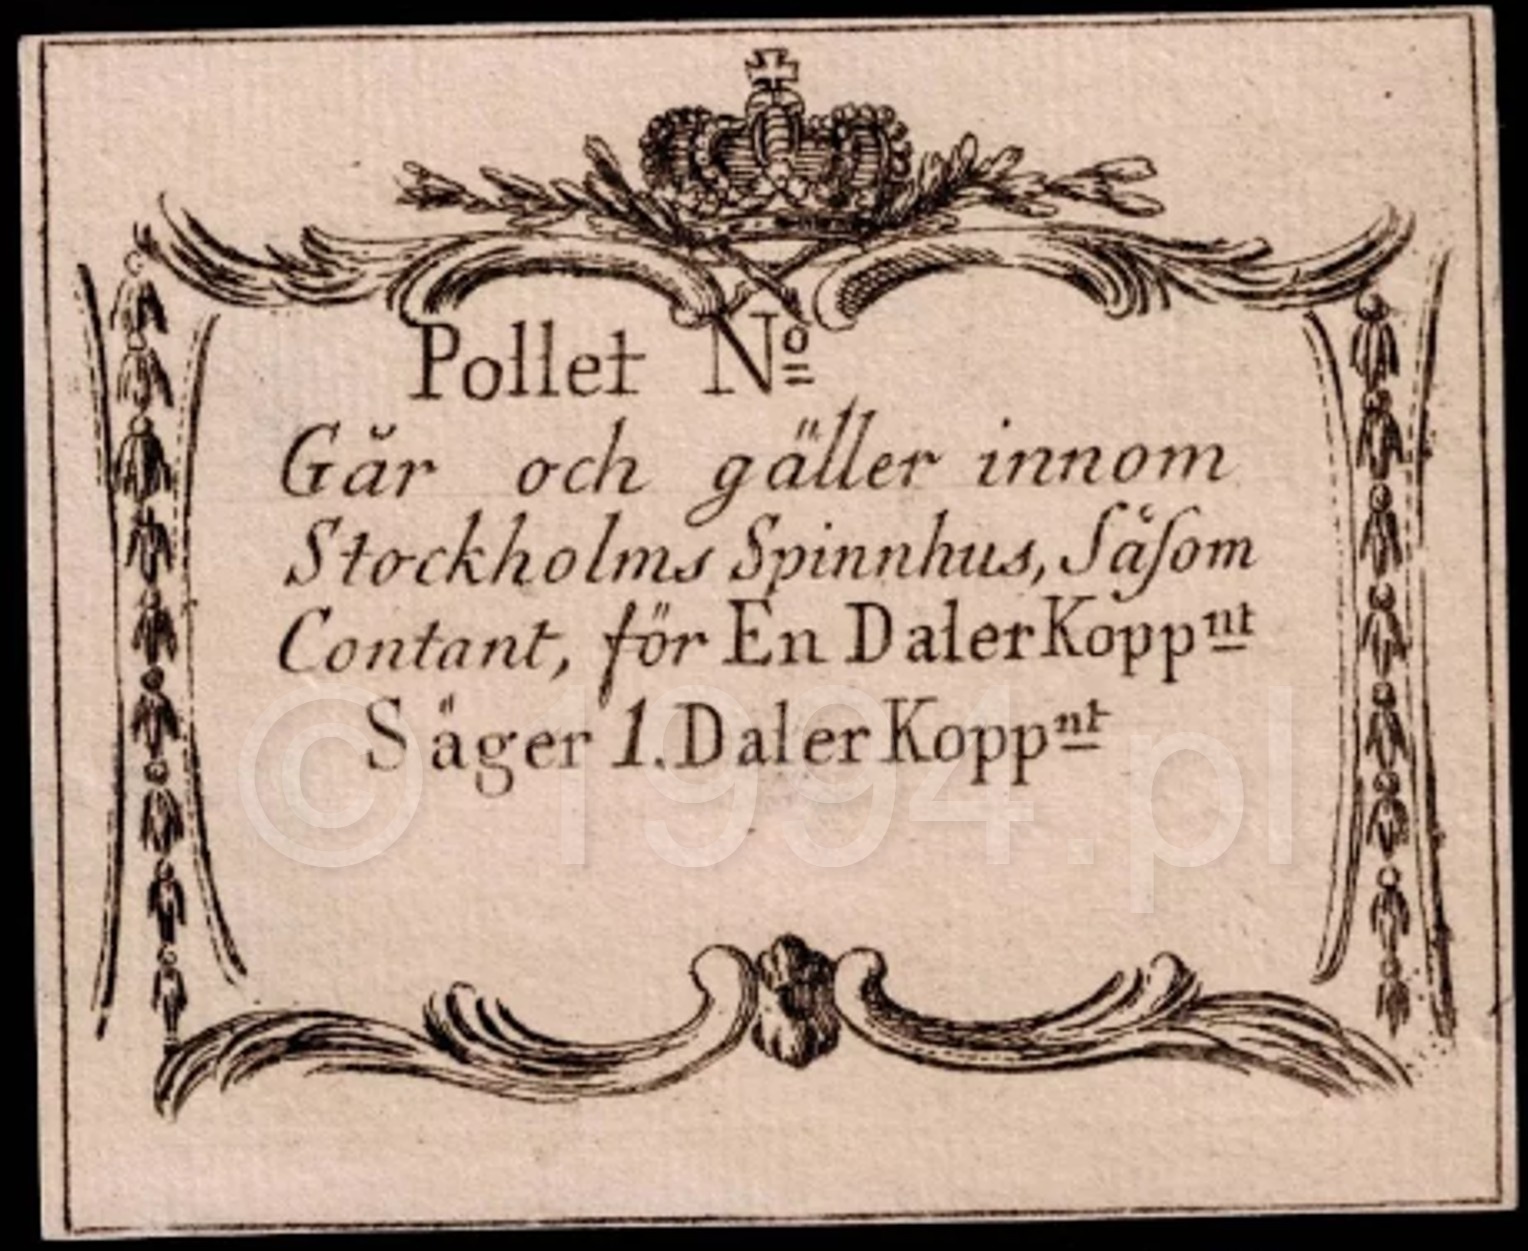 Pollet Nº
Går och gäller innom
Stockholms Spinnhus, Såſom
Contant, för En Daler Kopp.nt
Säger 1. Daler Kopp.nt
© 1994.pl